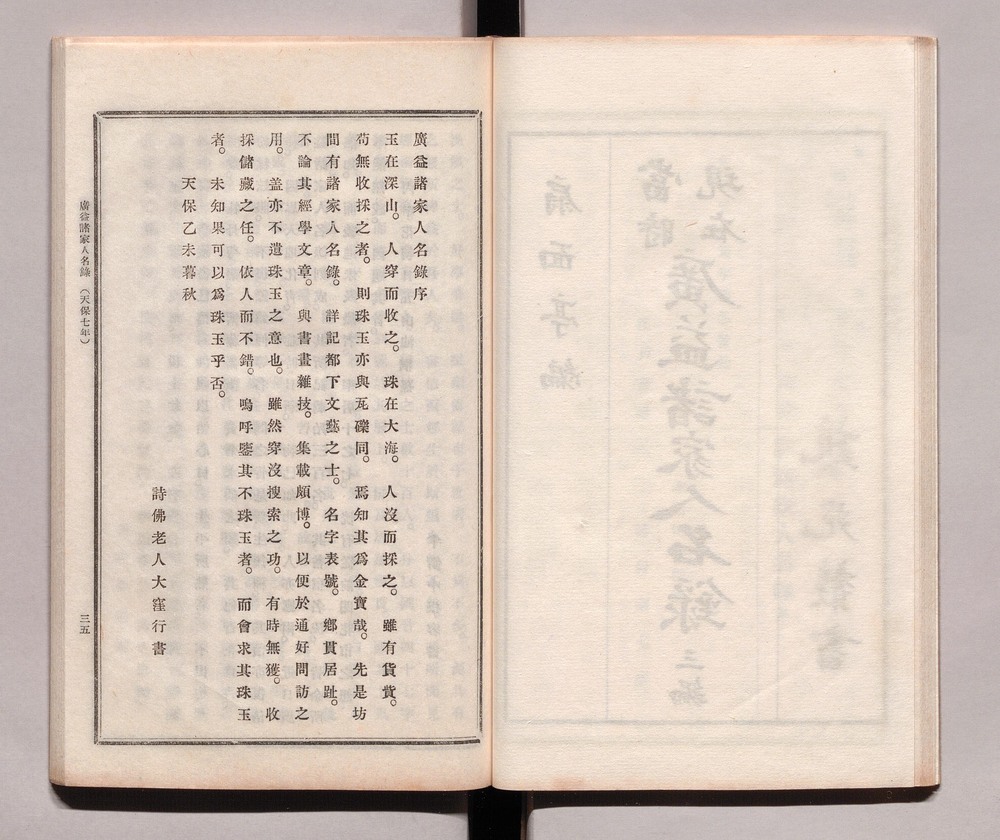 廣益諸家人名錄序
玉在深山。人穿而收之。珠在大海。人沒而採之。雖有貨貲。
苟無收採之者。則珠玉亦與瓦礫同。焉知其爲金寶哉。先是坊
間有諸家人名錄。詳記都下文藝之士。名字表號。鄉貫居趾。
不論其經學文章。與書畫雜技。集載頗博。以便於通好問訪之
用。盖亦不遺珠玉之意也。雖然穿沒搜索之功。有時無獲。收
採儲藏之任。依人而不錯。嗚呼鑒其不珠玉者。而會求其珠玉
者。未知果可以爲珠玉乎否。
天保乙未暮秋
詩佛老人大窪行書
廣益諸家人名錄（天保七年）
三五